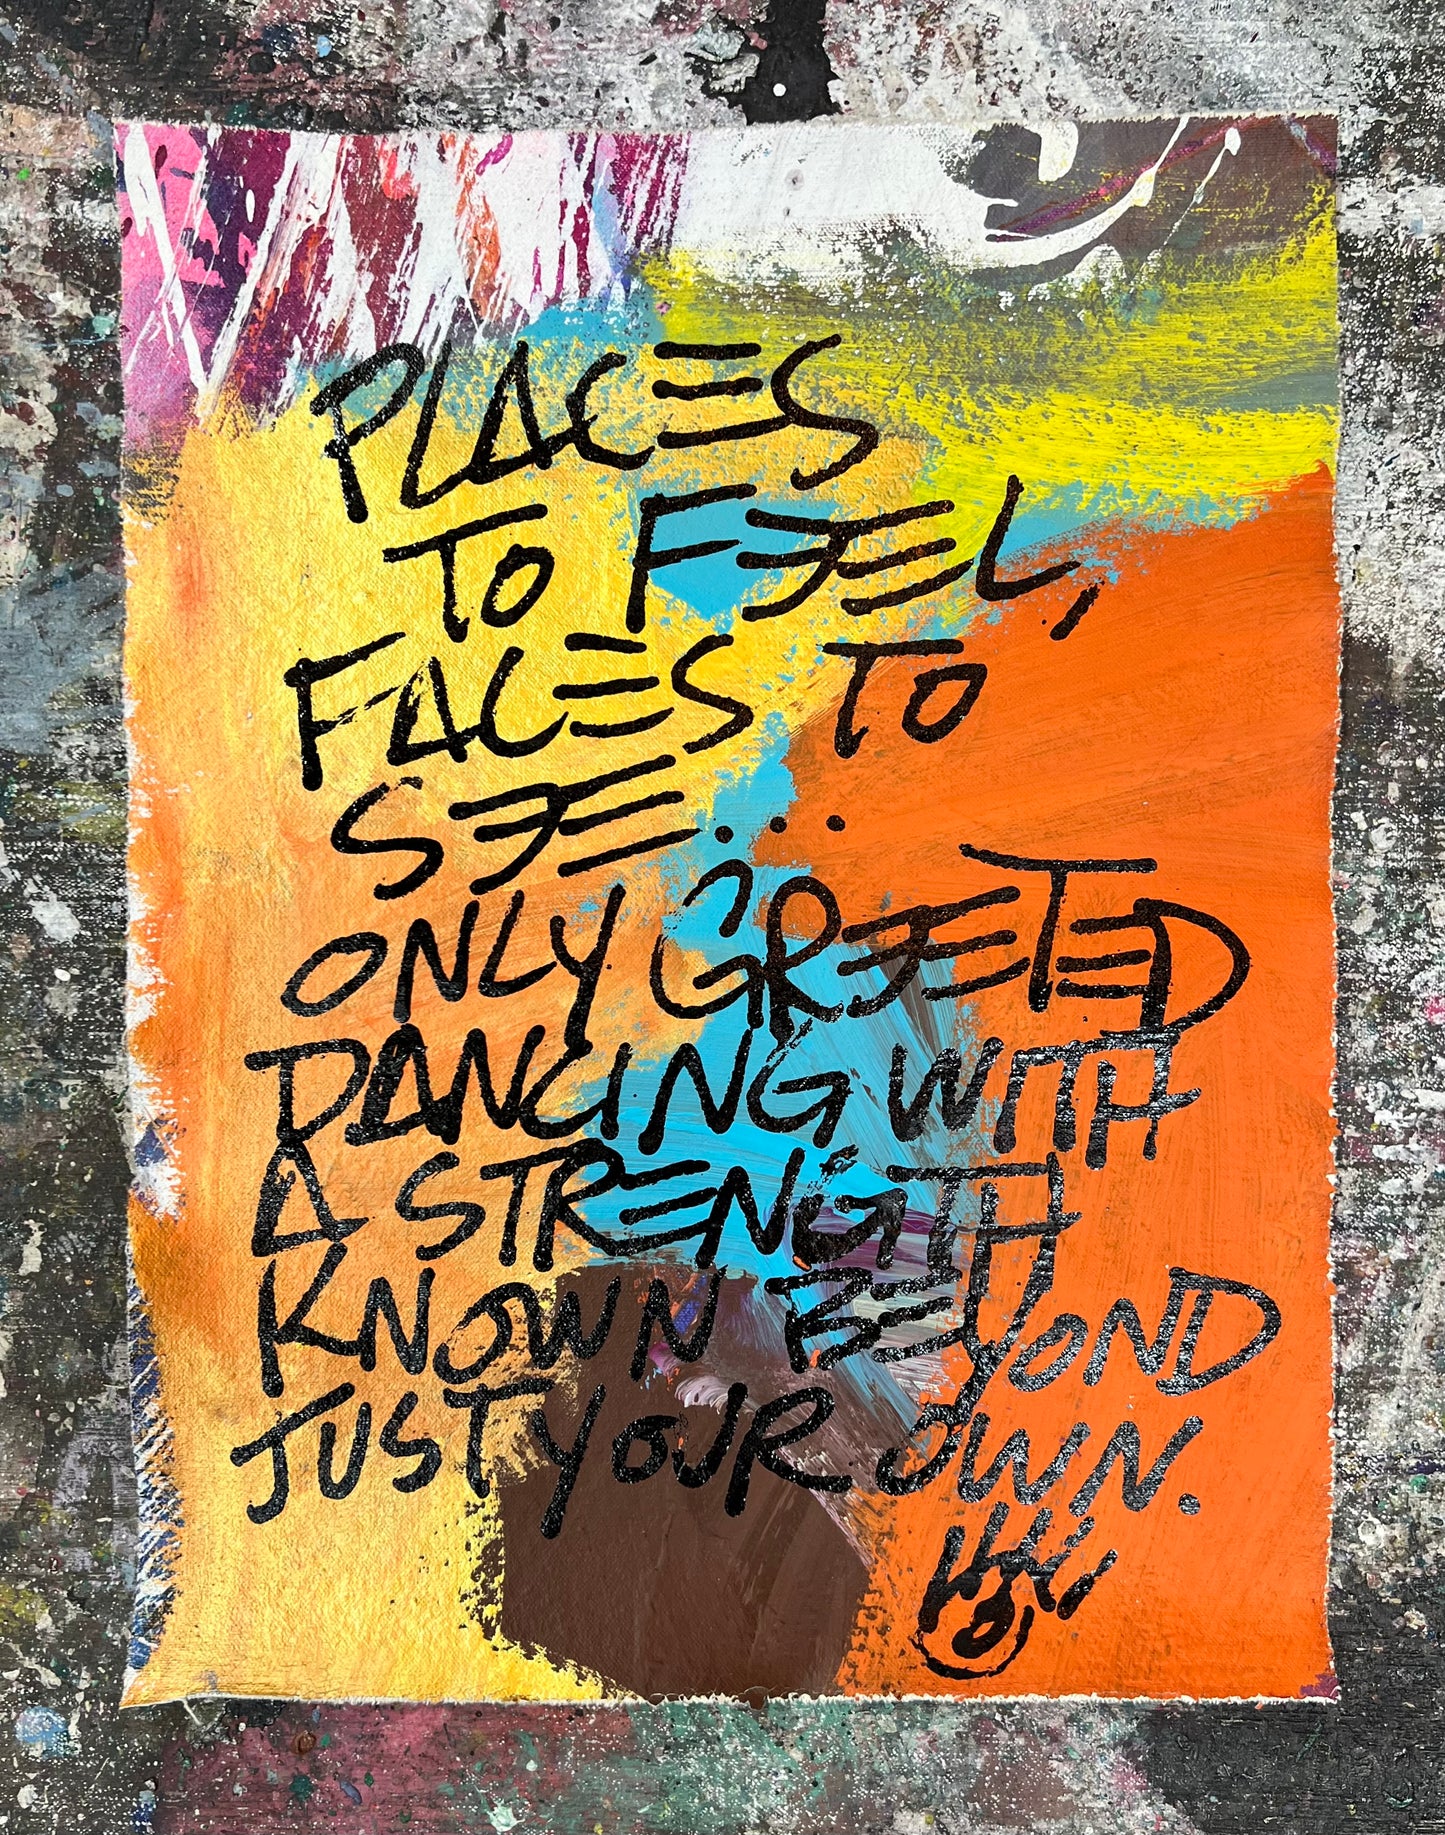 PLACES
TO FEEL,
FACES TO
SEE...
ONLY GREETED
DANCING WITH
A STRENGTH
KNOWN BEYOND
JUST YOUR OWN.